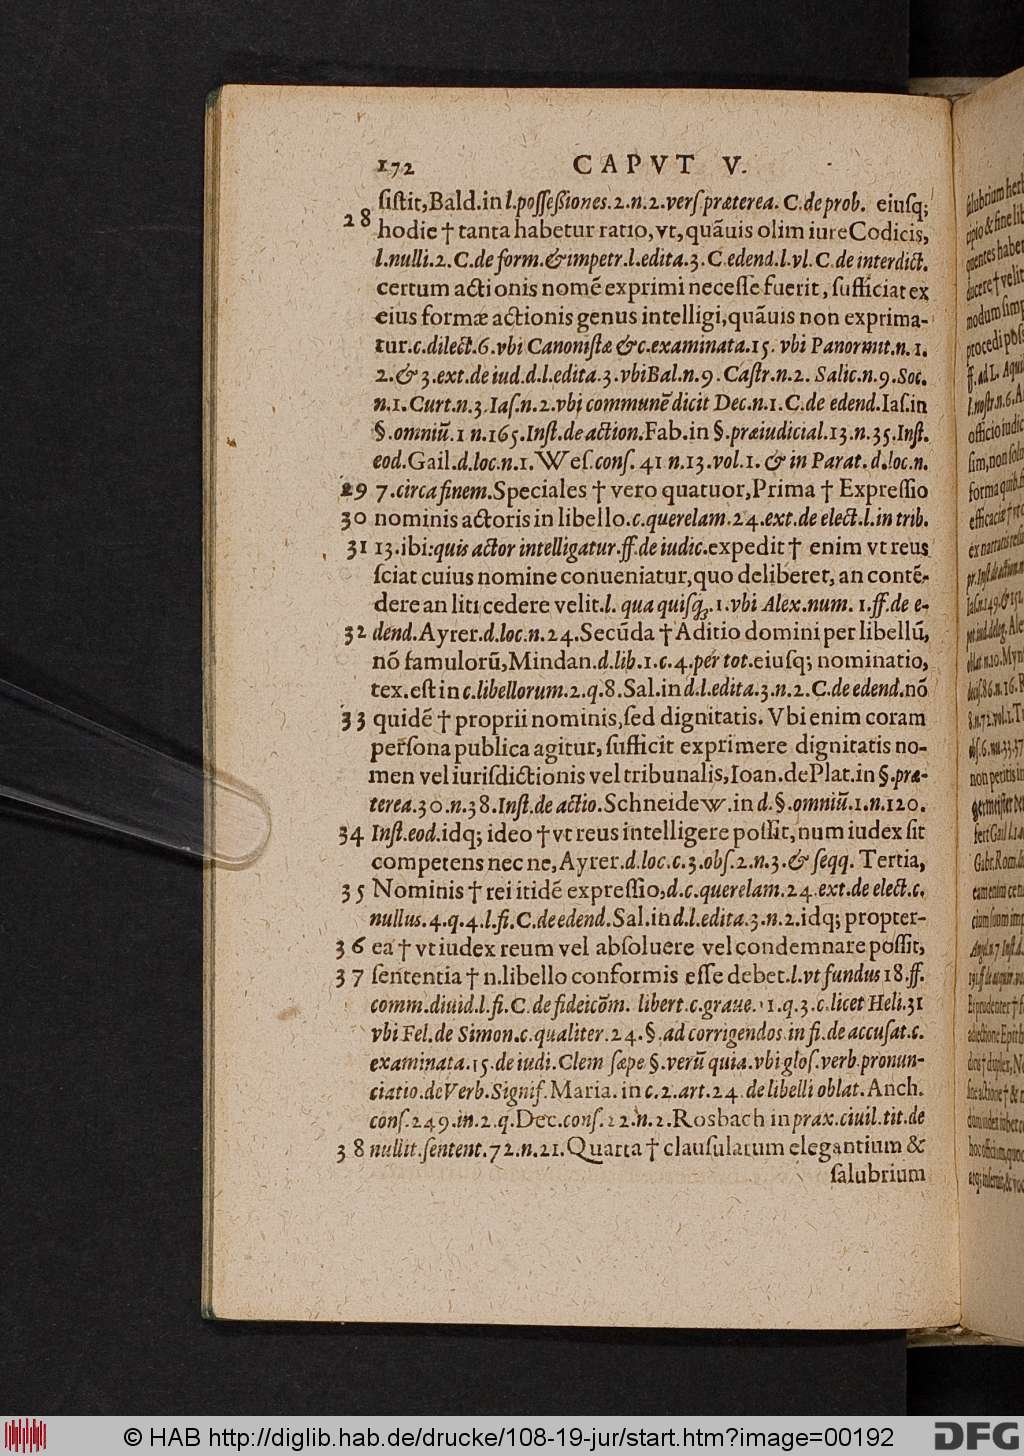 172 CAPVT V.
sistit, Bald. in l. possessiones. 2. n. 2. vers præterea. C. de prob. eiusq;
28 hodie † tanta habetur ratio, vt, quãuis olim iure Codicis,
l. nulli. 2. C. de form. & impetr. l. edita. 3. C edend. l. vl. C. de interdict.
certum actionis nomẽ exprimi necesse fuerit, sufficiat ex
eius formæ actionis genus intelligi, quãuis non exprima-
tur. c. dilect. 6. vbi Canonistæ & c. examinata. 15. vbi Panormit. n. 1.
2. & 3. ext. de iud. d. l. edita. 3. vbi Bal. n. 9. Castr. n. 2. Salic. n. 9. Soc.
n. 1. Curt. n. 3. Ias. n. 2. vbi communẽ dicit Dec. n. 1. C. de edend. Ias. in
§. omniũ. 1 n. 165. Inst. de action. Fab. in §. præiudicial. 13. n. 35. Inst.
eod. Gail. d. loc. n. 1. Wes. cons. 41 n. 13. vol. 1. & in Parat. d. loc. n.
29 7. circa finem. Speciales † vero quatuor, Prima † Expressio
30 nominis actoris in libello. c. querelam. 24. ext. de elect. l. in trib.
31 13. ibi: quis actor intelligatur. ff. de iudic. expedit † enim vt reus
sciat cuius nomine conueniatur, quo deliberet, an contẽ-
dere an liti cedere velit. l. qua quisq;. 1. vbi Alex. num. 1. ff. de e-
32 dend. Ayrer. d. loc. n. 24. Secũda † Aditio domini per libellũ,
nõ famulorũ, Mindan. d. lib. 1. c. 4. per tot. eiusq; nominatio,
tex. est in c. libellorum. 2. q. 8. Sal. in d. l. edita. 3. n. 2. C. de edend. nõ
33 quidẽ † proprii nominis, sed dignitatis. Vbi enim coram
persona publica agitur, sufficit exprimere dignitatis no-
men vel iurisdictionis vel tribunalis, Ioan. de Plat. in §. præ-
terea. 30. n. 38. Inst. de actio. Schneidew. in d. §. omniũ. 1. n. 120.
34 Inst. eod. idq; ideo † vt reus intelligere possit, num iudex sit
competens nec ne, Ayrer. d. loc. c. 3. obs. 2. n. 3. & seqq. Tertia,
35 Nominis † rei itidẽ expressio, d. c. querelam. 24. ext. de elect. c.
nullus. 4. q. 4. l. fi. C. de edend. Sal. in d. l. edita. 3. n. 2. idq; propter-
36 ea † vt iudex reum vel absoluere vel condemnare possit,
37 sententia † n. libello conformis esse debet. l. vt fundus 18. ff.
comm. diuid. l. fi. C. de fideicõm. libert. c. graue. 11. q. 3. c. licet Heli. 31
vbi Fel. de Simon. c. qualiter. 24. §. ad corrigendos in fi. de accusat. c.
examinata. 15. de iudi. Clem sæpe §. verũ quia. vbi glos. verb. pronun-
ciatio. de Verb. Signif. Maria. in c. 2. art. 24. de libelli oblat. Anch.
cons. 249. in. 2. q. Dec. cons. 22. n. 2. Rosbach in prax. ciuil. tit. de
38 nullit. sentent. 72. n. 21. Quarta † clausularum elegantium &
salubrium
© HAB http://diglib.hab.de/drucke/108-19-jur/start.htm?image=00192
DFG